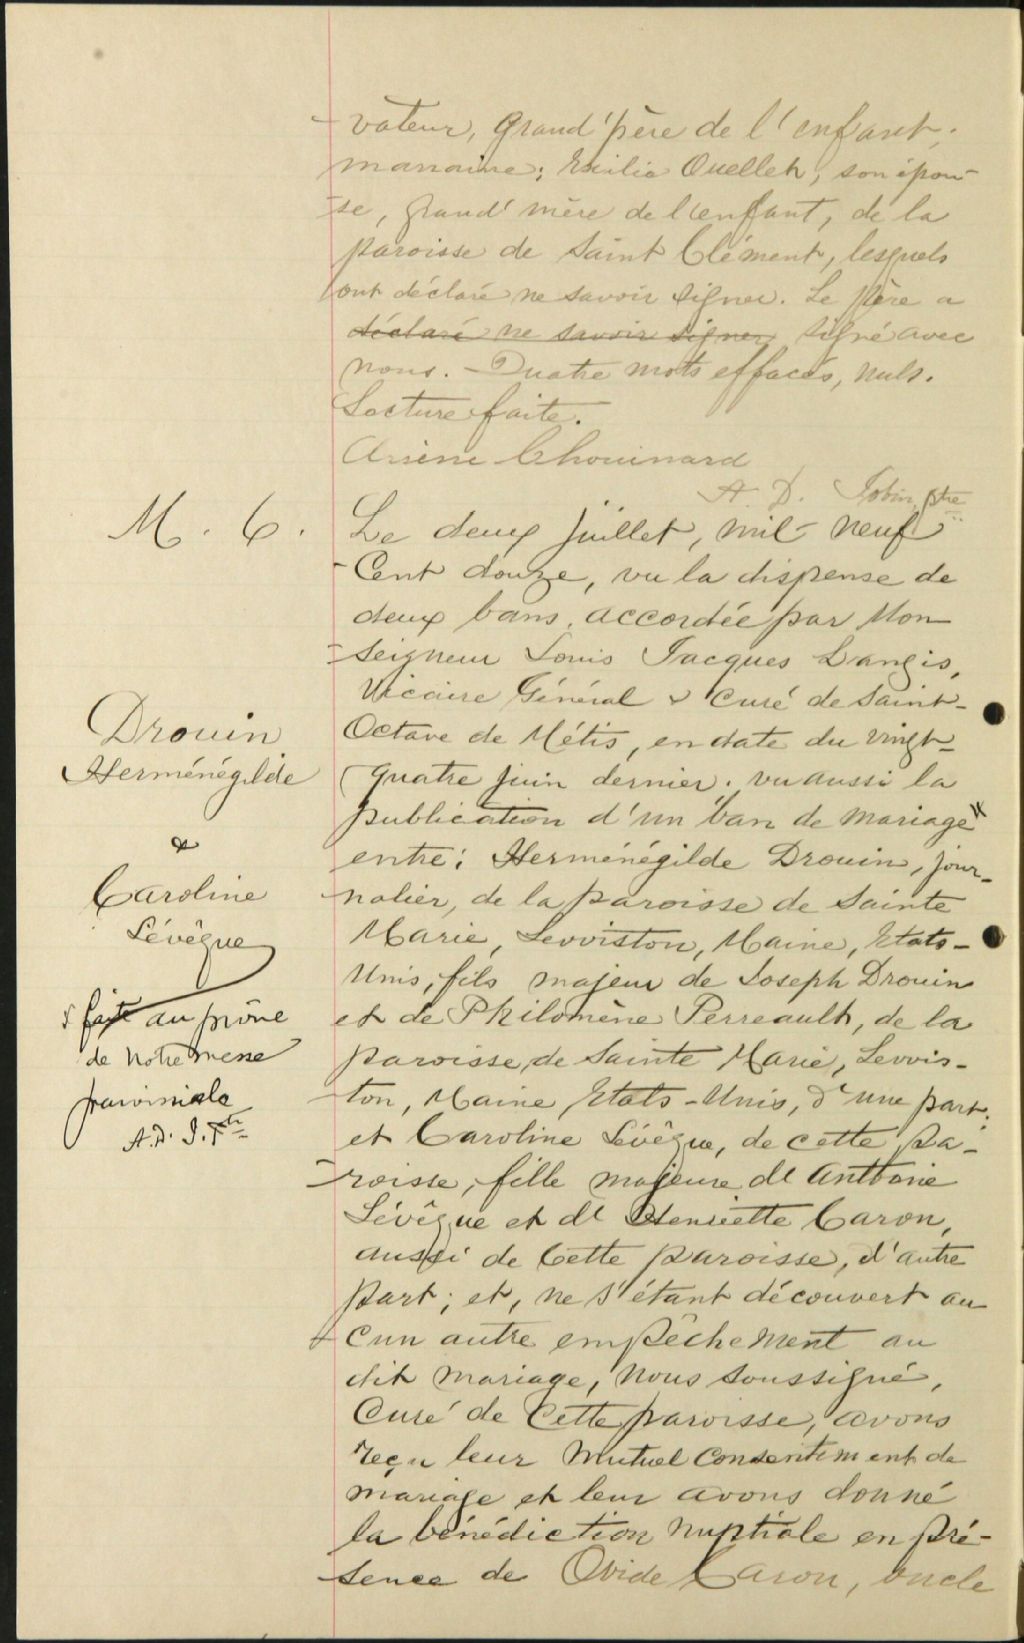 vateur, Grand'père de l'enfant;
marraine; Emilia Ouellet, son épou-
se, grand'mère de l'enfant, de la
paroisse de Saint Clément, lesquels
ont déclaré ne savoir signer. Le père a
déclaré ne savoir signer signé avec
nous. - Quatre mots effacés, nuls.
Lecture faite.
Arsène Chouinard
A. D. Jobin, ptre
M. 6.
Le deux juillet, mil neuf
Cent douze, vu la dispense de
deux bans, accordée par Mon
seigneur Louis Jacques Langis,
Vicaire Général & Curé de Saint-
Octave de Métis, en date du vingt-
quatre juin dernier; vu aussi la
publication d'un ban de mariage
entre: Herménégilde Drouin, jour-
nalier, de la paroisse de Sainte
Marie, Lewiston, Maine, Etats-
Unis, fils majeur de Joseph Drouin
et de Philomène Perreault, de la
paroisse de Sainte Marie, Lewis-
ton, Maine, Etats-Unis, d'une part;
et Caroline Lévêque, de cette pa-
roisse, fille majeure de Anthoine
Lévêque et de Henriette Caron,
aussi de Cette paroisse, d'autre
part; et, ne s'étant découvert au
cun autre empêchement au
dit mariage, nous soussigné,
Curé de Cette paroisse, avons
reçu leur mutuel consentement de
mariage et leur avons donné
la bénédiction nuptiale en pré-
sence de Ovide Caron, oncle
Drouin
Herménégilde
&
Caroline
Lévêque
faite au prône
de notre messe
paroissiale
A.D. J. Ptre